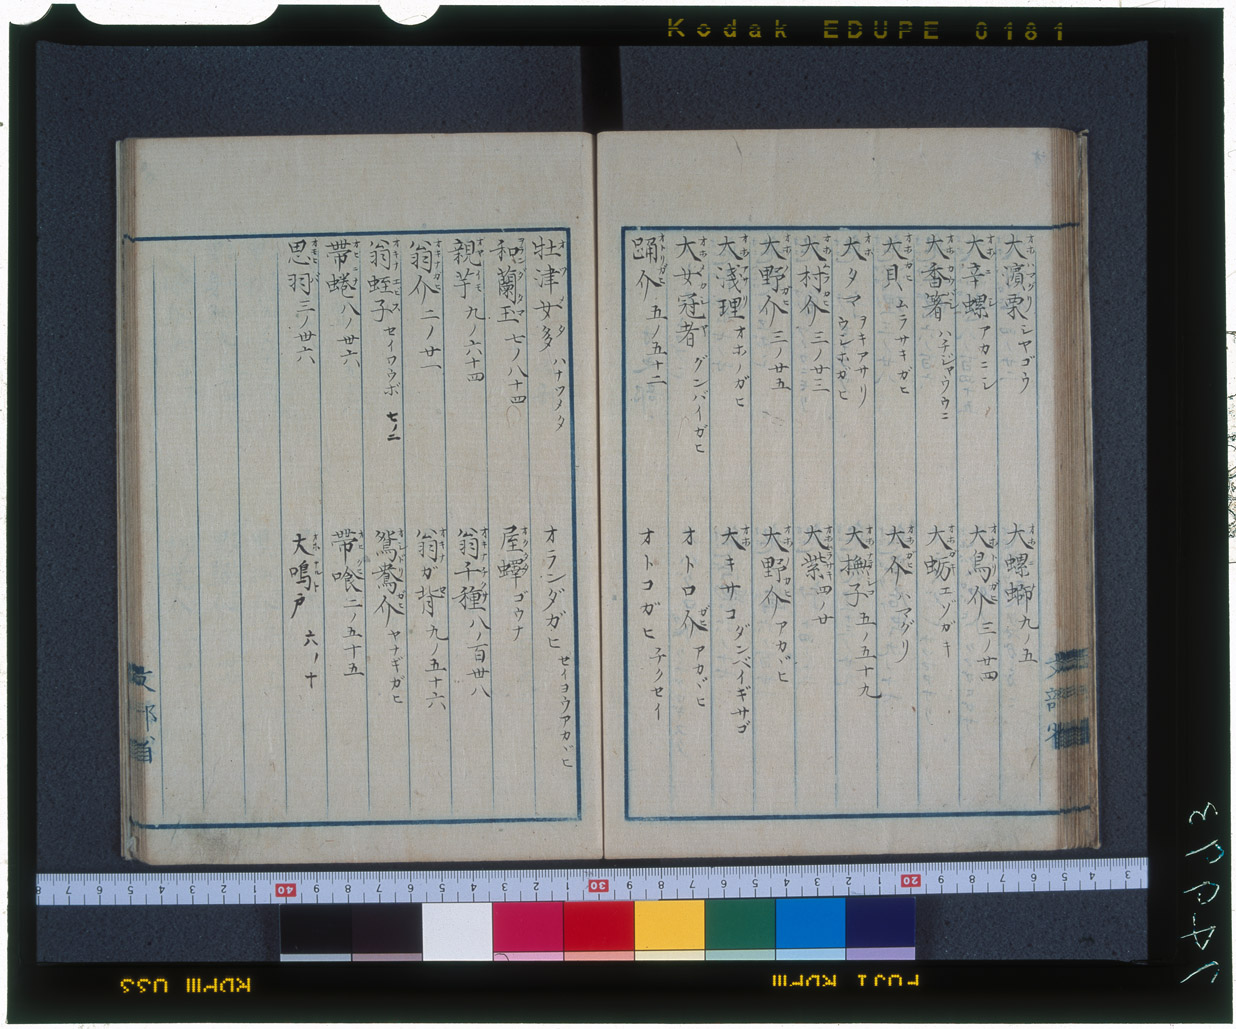 Kodak EDUPE 0181
大濱栗 シヤゴウ
大螺螄 九ノ五
大辛螺 アカニシ
大鳥介 三ノ廿四
大香箸 ハチジヤウウニ
大蛎 エゾガキ
大貝 ムラサキガヒ
大介 ハマグリ
大タマ ヲキアサリ ウンホガヒ
大撫子 五ノ五十九
大村介 三ノ廿三
大紫 四ノ廿
大野介 三ノ廿五
大野介 アカヾヒ
大淺理 オホノガヒ
大キサコ ダンベイギサゴ
大女冠者 グンバイガヒ
オトロ介 アカヾヒ
踊介 五ノ五十二
オトコガヒ
牡津女多 ハナツメタ
オランダガヒ セイヨウアカヾヒ
和蘭玉 七ノ八十四
屋蟫 ゴウナ
親芋 九ノ六十四
翁千種 八ノ百卅八
翁介 二ノ廿一
翁ガ背 九ノ五十六
翁蛭子 セイワウボ 七ノ二
鴛鴦介 ヤナギガヒ
帶蜷 八ノ卅六
帶喰 二ノ五十五
思羽 三ノ廿六
大鳴戸 六ノ十
文部省
文部省
FUJI